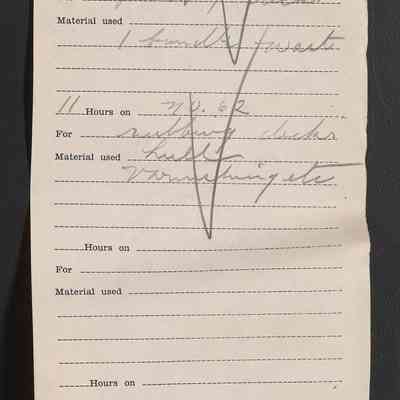 Material used
1 bundle waste
11 Hours on No. 62
For rubbing decks
Material used hull
Varnishing etc
Hours on
For
Material used
Hours on